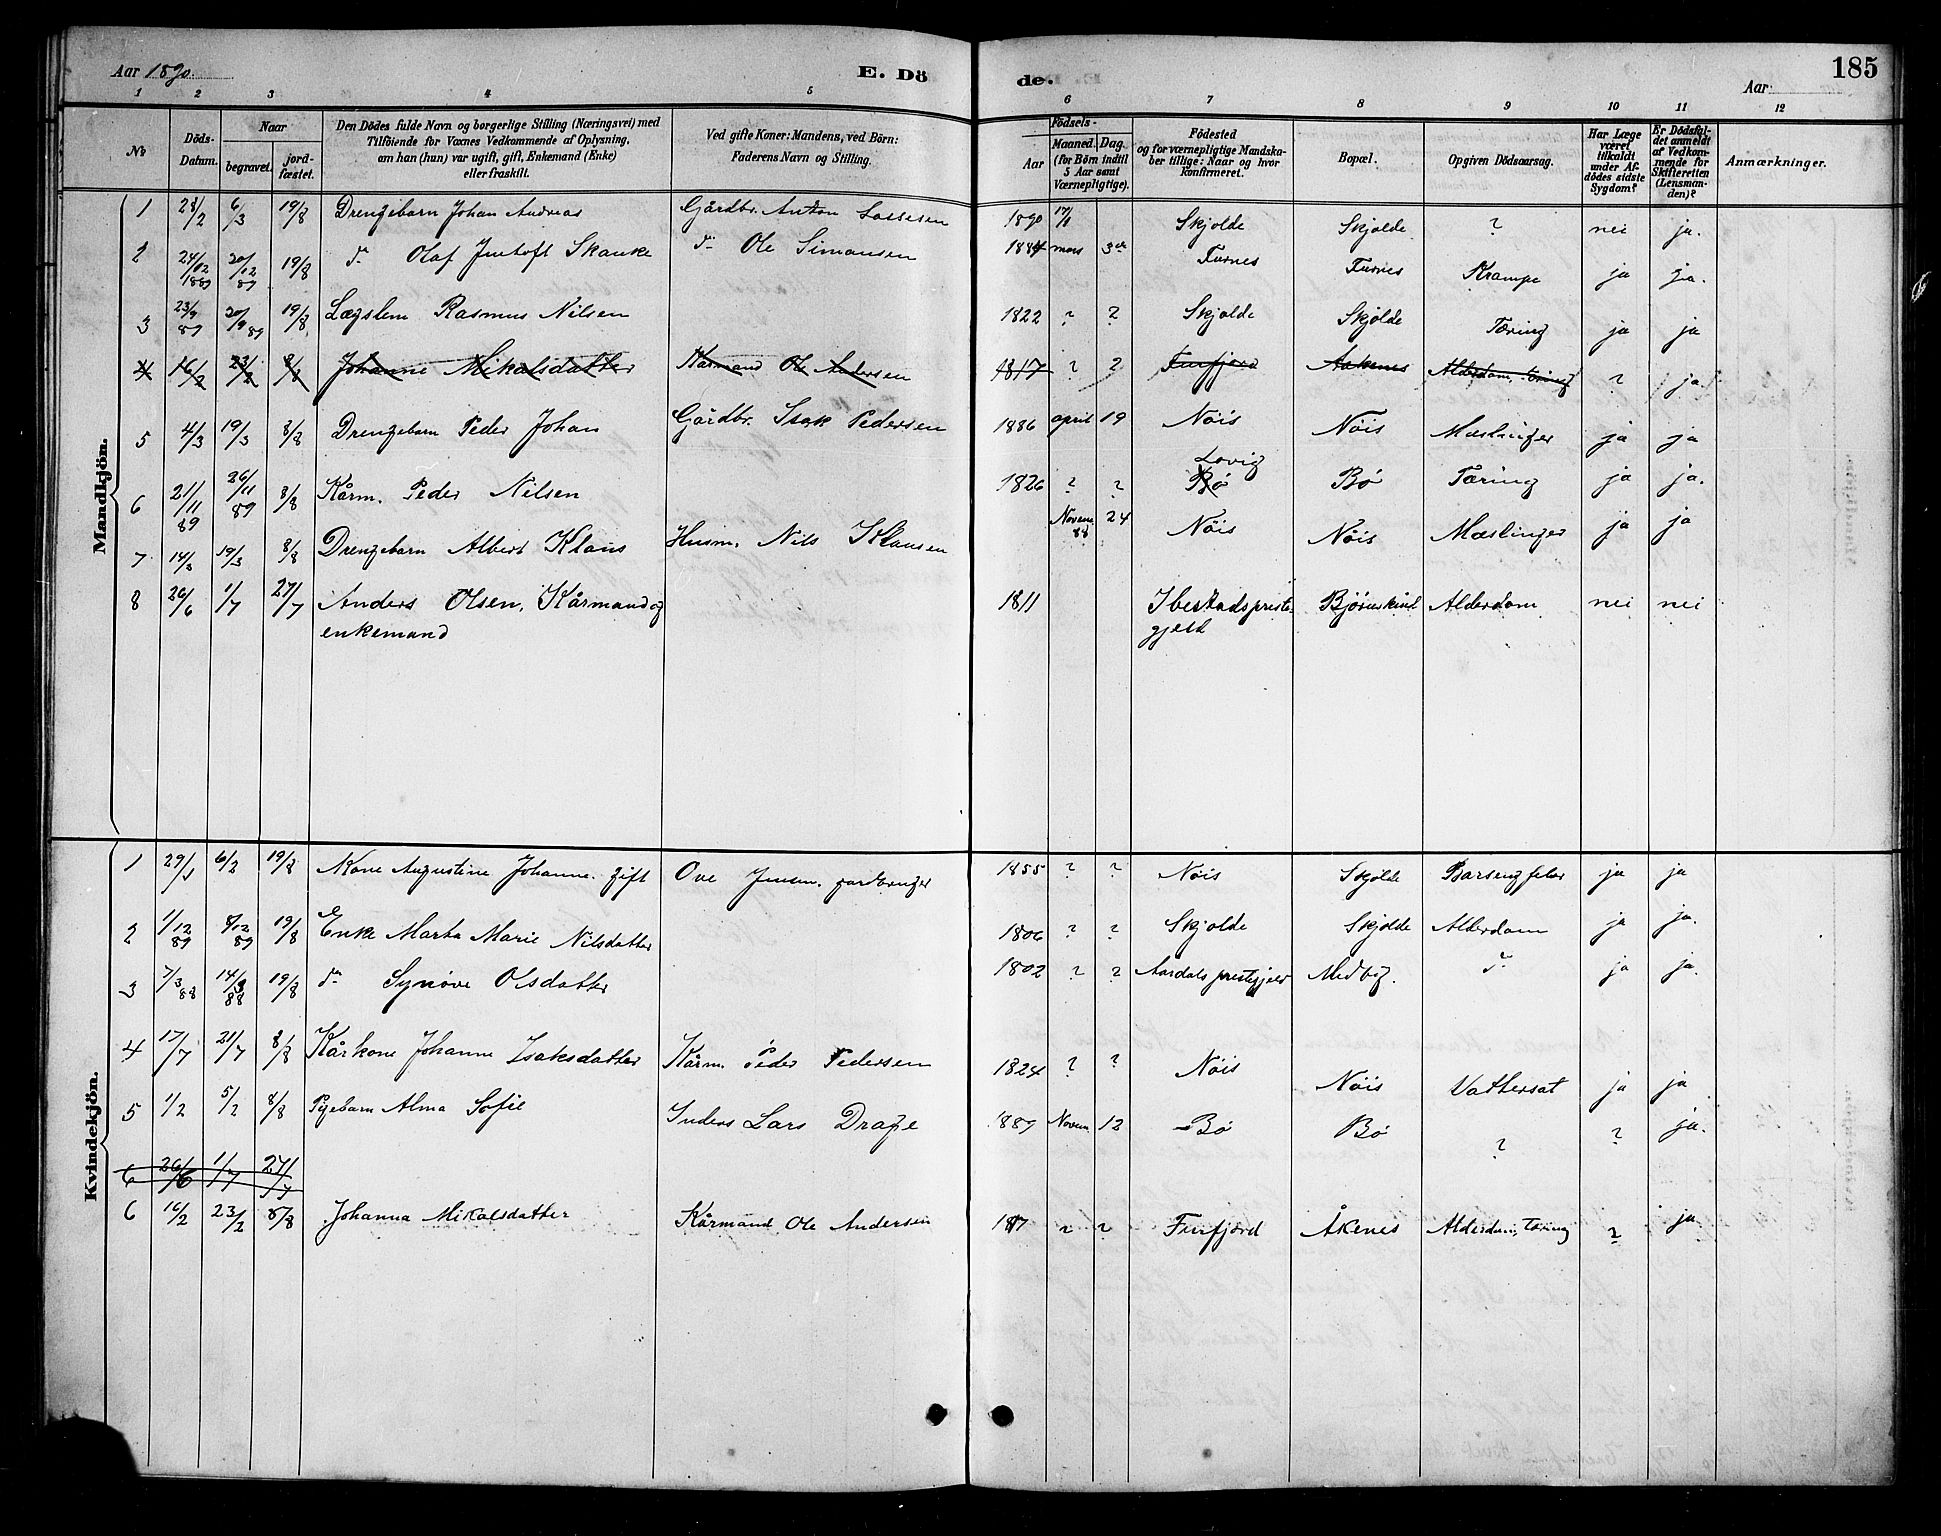 Aar 1890. E. Dö de. Aar 185
1 2 3 4 5 6 7 8 9 10 11 12
№ Döds-Datum. Naar begravet. jordfæstet. Den Dödes fulde Navn og borgerlige Stilling (Næringsvei) med Tilföiende for Voxnes Vedkommende af Oplysning, om han (hun) var ugift, gift, Enkemand (Enke) eller fraskilt. Ved gifte Koner: Mandens, ved Börn: Faderens Navn og Stilling. Födsels- Aar Maaned. Dag. (for Börn indtil 5 Aar samt Værnepligtige). Födested og for værnepligtige Mandskaber tillige: Naar og hvor konfirmeret. Bopæl. Opgiven Dödsaarsag. Har Læge været tilkaldt under Afdödes sidste Sygdom? Er Dödsfaldet anmeldt af Vedkommende for Skifteretten (Lensmanden)? Anmærkninger.
Mandkjön.
1 28/2 6/3 19/8 Drengebarn Johan Andreas Gårdbr. Anton 1890 17/1 Skjolde Skjolde ? nei ja.
2 24/12 1889 20/12 89 19/8 do Olaf Skanke do Ole Simonsen 1884 mars 3de Furnes Furnes Krampe ja ja.
3 23/9 89 20/9 89 19/8 Lægslem Rasmus Nilsen 1822 ? ? Skjolde Skjolde Tæring ja ja
4 16/2 23/2 8/8 Johanne Mikalsdatter Kårmand Ole Andersen 1817 ? ? Finfjord Aakenes Alderdom, tæring ? ja
5 4/3 19/3 8/8 Drengebarn Peder Johan Gårdbr. Isak Pedersen 1886 april 19 Nöis Nöis Mæslinger ja ja
6 21/11 89 26/11 89 8/8 Kårm. Peder Nilsen 1826 ? ? Bø Lovig Bø Tæring ja ja.
7 14/3 19/3 8/8 Drengebarn Albert Klaus Husm. Nils Klausen Novem. 88 24 Nöis Nöis Mæslinger ja ja
8 26/6 1/7 27/7 Anders Olsen, Kårmand og 1811 Ibestads preste- Bjørnskind Alderdom nei nei
enkemand gjeld
Kvindekjön.
1 29/1 6/2 19/8 Kone Augustine Johanne. gift Ove Jensen, gardbruger 1855 ? ? Nöis Skjolde Barsengfeber ja ja
2 1/12 89 8/12 89 19/8 Enke Marta Marie Nilsdatter 1806 ? ? Skjolde Skjolde Alderdom ja ja.
3 7/3 88 14/3 88 19/8 do Synöve Olsdatter 1802 ? ? Aardals prestegjeld Medbø. do ja ja.
4 17/7 21/7 8/8 Kårkone Johanne Isaksdatter Kårm. Peder Pedersen 1824 ? ? Nöis Nöis Vattersot ja ja
5 1/2 5/2 8/8 Pigebarn Alma Sofie Inders Lars Drage 1889 Novem. 12 Bø Bø ? ? ja.
6 26/6 1/7 27/7
6 16/2 23/2 8/8 Johanna Mikalsdatter Kårmand Ole Andersen 1817 ? ? Finfjord Åkenes Alderdom, tæring ? ja